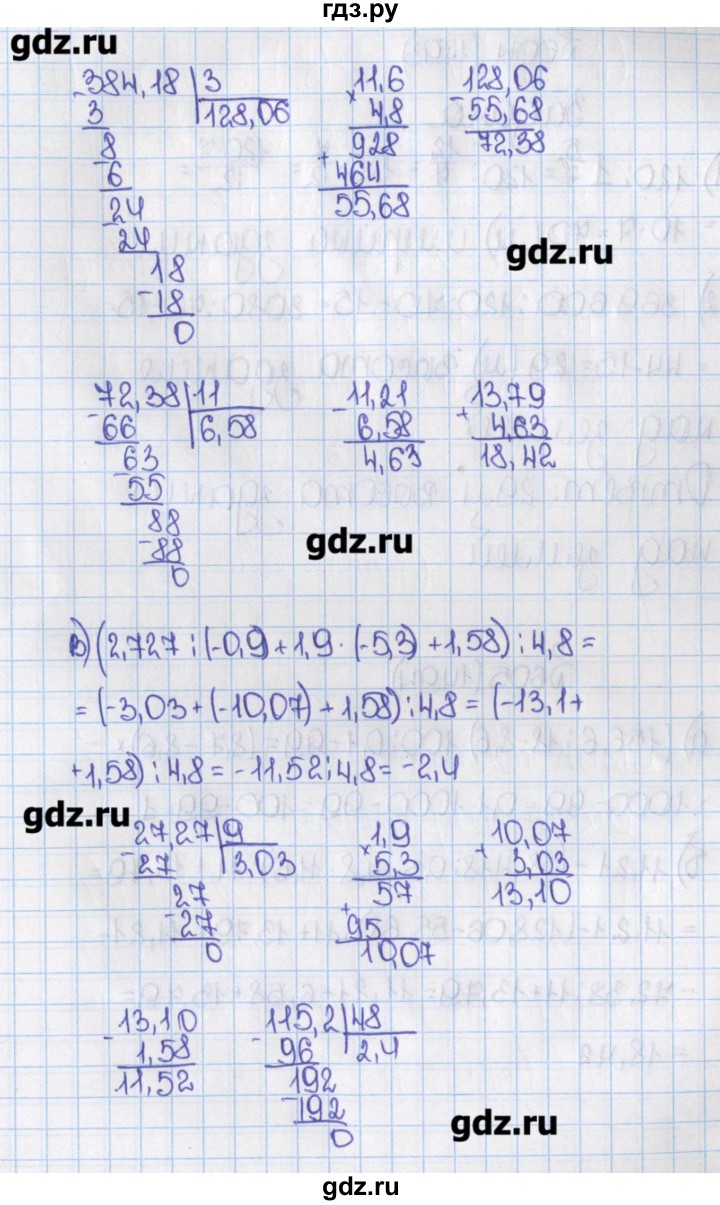 гдз.ру
gdz.ru
384,18 | 3
3 128,06
8
6
24
24
18
-18
0
11,6
× 4,8
928
+ 464
55,68
128,06
- 55,68
72,38
gdz.ru
72,38 | 11
- 66 6,58
63
- 55
88
- 88
0
- 11,21
6,58
4,63
13,79
+ 4,63
18,42
gdz.ru
в) (2,727 : (-0,9) + 1,9 · (-5,3) + 1,58) : 4,8 =
= (-3,03 + (-10,07) + 1,58) : 4,8 = (-13,1 +
+ 1,58) : 4,8 = -11,52 : 4,8 = -2,4
gdz.ru
27,27 | 9
- 27 3,03
27
- 27
0
1,9
× 5,3
57
+ 95
10,07
10,07
+ 3,03
13,10
- 13,10
1,58
11,52
115,2 | 48
- 96 2,4
192
- 192
0
gdz.ru
gdz.ru